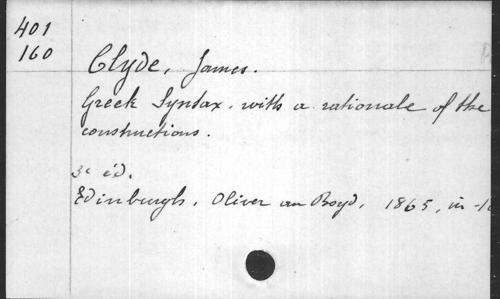 401
160
Clyde, James.
Greek Syntax. with a rationale of the
constructions.
3e éd.
Edinburgh, Oliver an Boyd, 1865, in-1